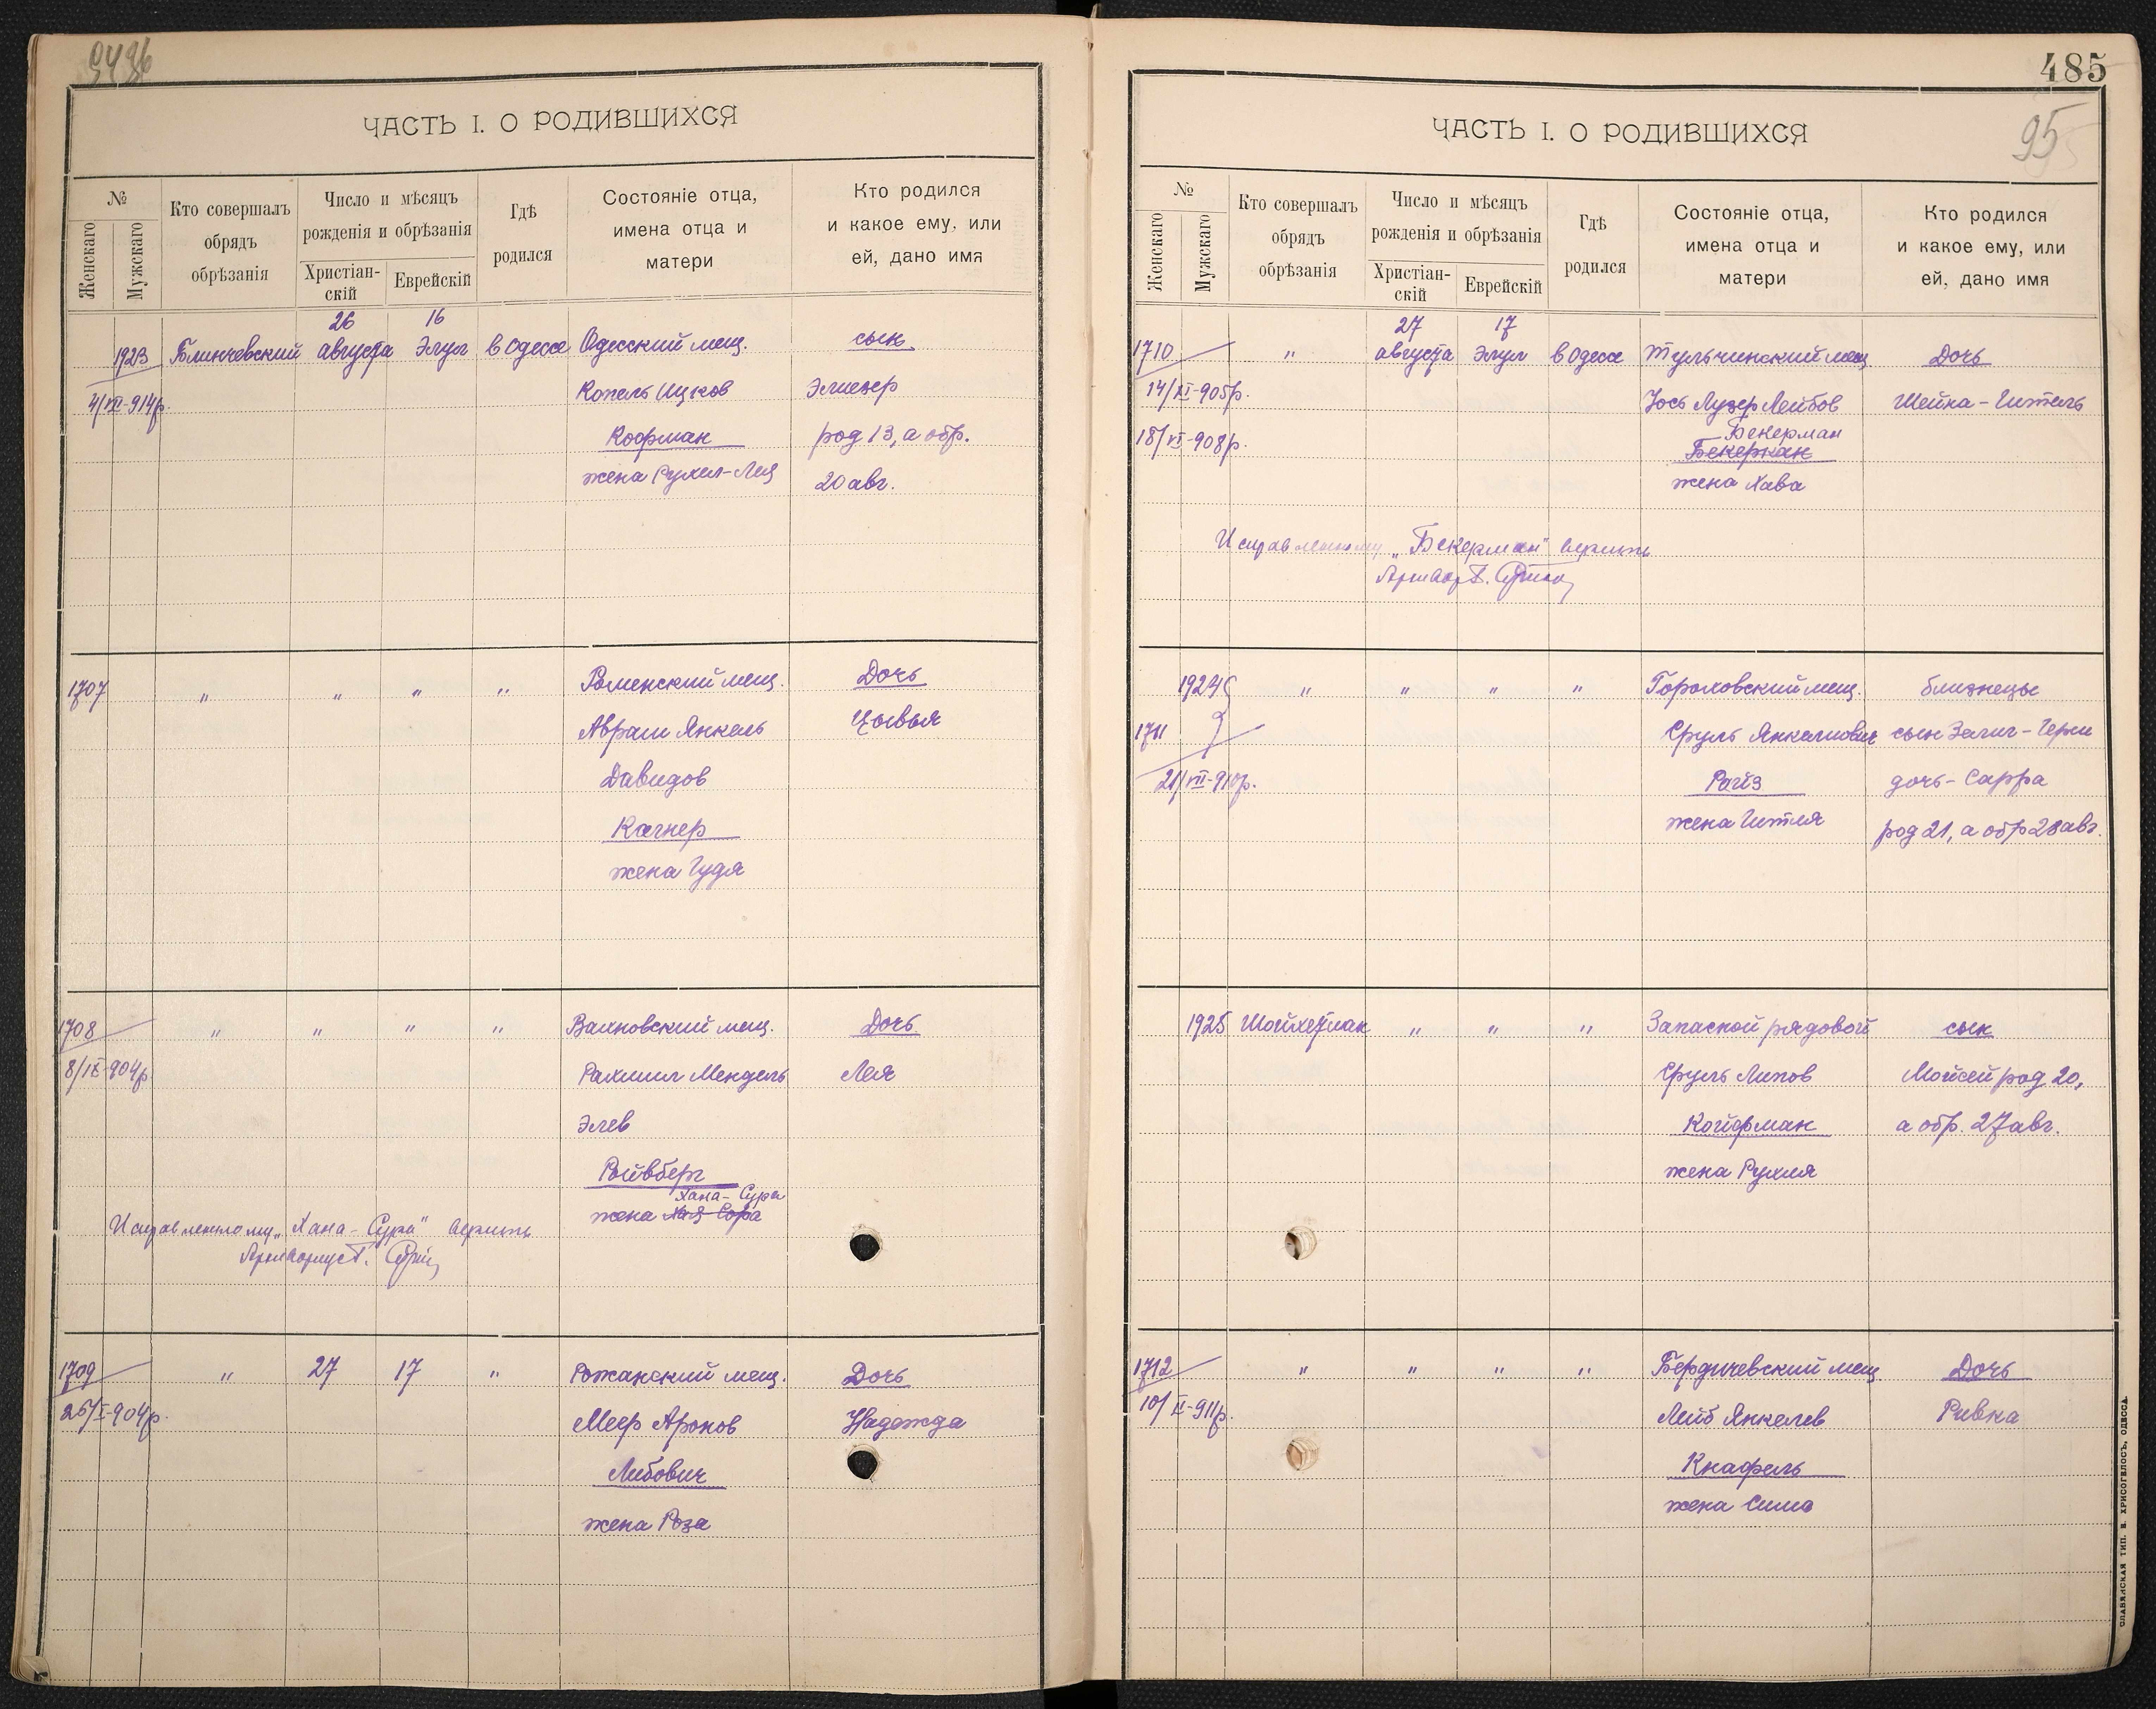 9496
ЧАСТЬ I. О РОДИВШИХСЯ
№
Женскаго
Мужскаго
Кто совершалъ обрядъ обрѣзанія
Число и мѣсяцъ рожденія и обрѣзанія
Христіан-
скій
Еврейскій
Гдѣ родился
Состояніе отца, имена отца и матери
Кто родился и какое ему, или ей, дано имя
26 16
1923 Блинчевский августа Элул в Одессе Одесский мещ. сын
4/VII-914р. Копель Ицков Элиезер
Кофман род 13, а обр.
жена Рухел-Лея 20 авг.
1707 " " " " Роменский мещ. Дочь
Аврам Янкель Цывья
Давидов
Качнер
жена Гудя
1708 " " " " Вахновский мещ. Дочь
8/IX-904р Рахмил Мендель Лея
Элев
Ройвберг
Хана-Сура
жена Хая Сора
Исправленному „Хана-Сура" верить
1709 " 27 17 " Рожанский мещ. Дочь
26/I-904р. Меер Аронов Надежда
Либович
жена Роза
485
95
ЧАСТЬ I. О РОДИВШИХСЯ
№
Женскаго
Мужскаго
Кто совершалъ обрядъ обрѣзанія
Число и мѣсяцъ рожденія и обрѣзанія
Христіан-
скій
Еврейскій
Гдѣ родился
Состояніе отца, имена отца и матери
Кто родился и какое ему, или ей, дано имя
27 17
1710 " августа Элул в Одессе Тульчинский мещ Дочь
14/XI-905р. Иось Лузер Лейбов Шейна-Гитель
18/XI-908р. Бекерман
Бекеркан
жена Хава
Исправленному „Бекерман" верить
1924 " " " " Гороховский мещ. близнецы
1711 Сруль Янкелиович сын Зелиг-Герш
21/VII-910р. Райз дочь-Сарра
жена Гитля род 21, а обр 28 авг.
1925 Шойхетман " " " Запасной рядовой сын
Сруль Липов Мойсей род 20,
Койфман а обр. 27 авг.
жена Рухля
1712 " " " " Бердичевский мещ Дочь
10/II-911р. Лейб Янкелев Ривка
Кнафель
жена Сима
СЛАВЯНСКАЯ ТИП. Н. ХРИСОГЕЛОСЪ, ОДЕССА.